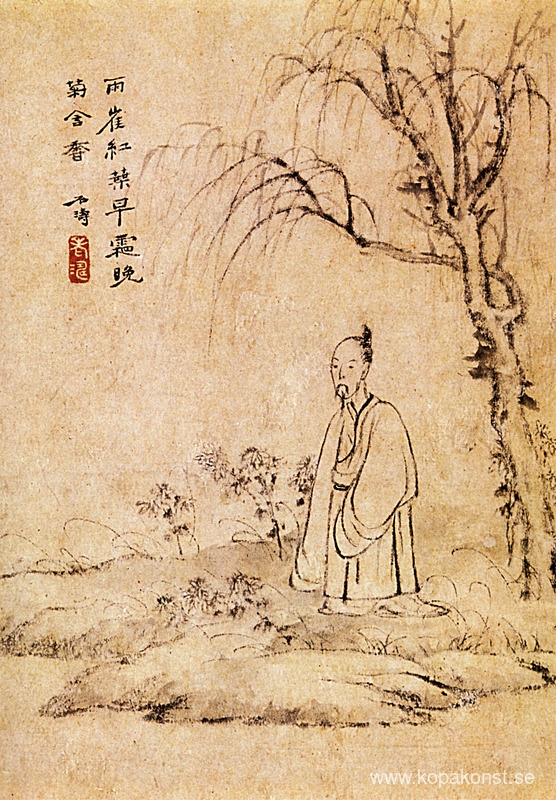 雨崔紅葉早霜晚
菊含香 石濤
老濤
www.kopakonst.se